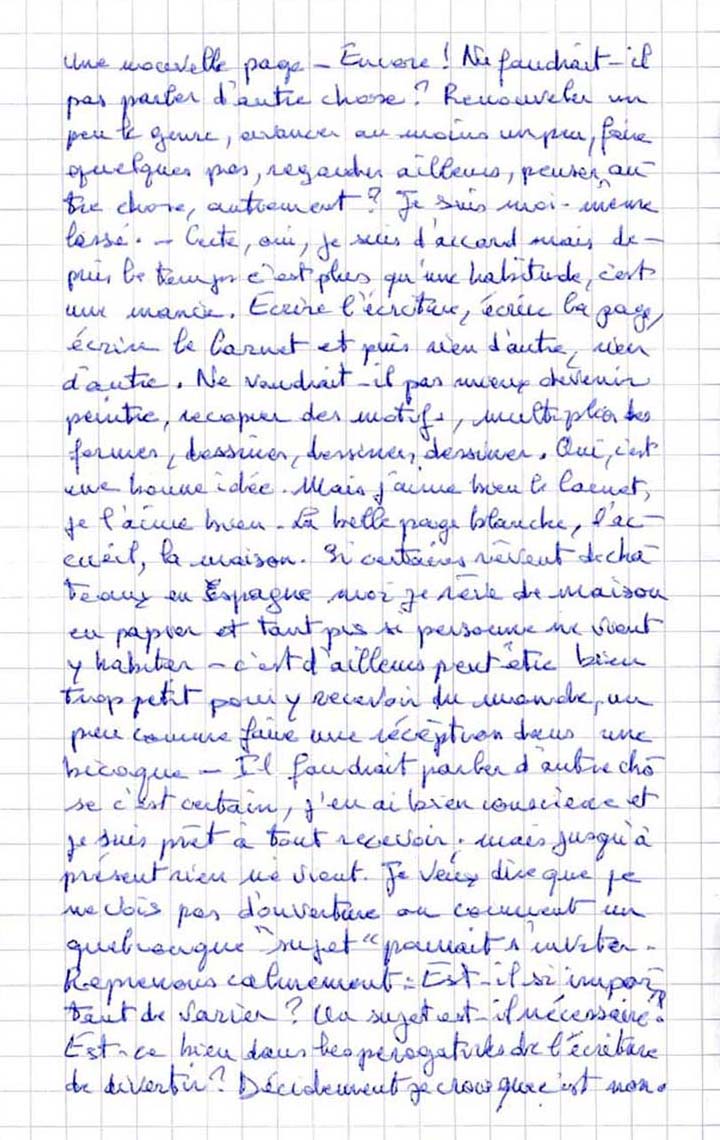 Une nouvelle page – Encore ! Ne faudrait-il
pas parler d'autre chose ? Renouveler un
peu le genre, avancer au moins un peu, faire
quelques pas, regarder ailleurs, penser au
tre chose, autrement ? Je suis moi-même
lassé. – Certe, oui, je suis d'accord mais de-
puis le temps c'est plus qu'une habitude, c'est
une manie. Ecrire l'écriture, écrire la page,
écrire le Carnet et puis rien d'autre, rien
d'autre. Ne vaudrait-il pas mieux devenir
peintre, recopier des motifs, multiplier les
formes, dessiner, dessiner, dessiner. Oui, c'est
une bonne idée. Mais j'aime bien le Carnet,
je l'aime bien. La belle page blanche, l'ac-
cueil, la maison. Si certaines rêvent de châ
teaux en Espagne moi je rêve de maison
en papier et tant pis si personne ne vient
y habiter – c'est d'ailleurs peut être bien
trop petit pour y recevoir du monde, un
peu comme faire une réception dans une
bicoque – Il faudrait parler d'autre cho
se c'est certain, j'en ai bien conscience et
je suis prêt à tout recevoir ; mais jusqu'à
présent rien ne vient. Je veux dire que je
ne vois pas d'ouverture ou comment un
quelconque "sujet" pourrait s'inviter.
Reprenons calmement : Est-il si impor
tant de varier ? Un sujet est-il nécessaire ?
Est-ce bien dans les pérogatives de l'écriture
de divertir ? Décidemment je crois que c'est non.